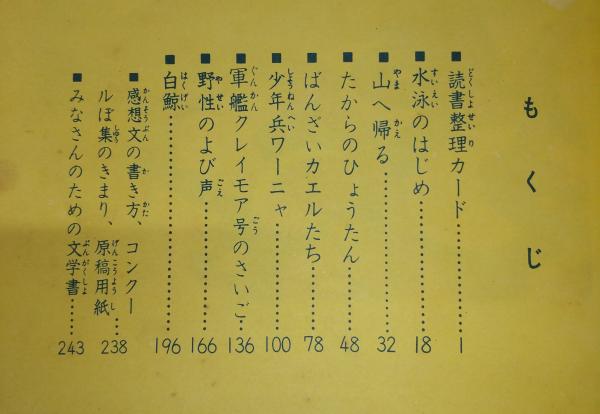 もくじ
■読書整理カード……1
■水泳のはじめ……18
■山へ帰る……32
■たからのひょうたん……48
■ばんざいカエルたち……78
■少年兵ワーニャ……100
■軍艦クレイモア号のさいご……136
■野性のよび声……166
■白鯨……196
■感想文の書き方、コンクー
ルぼ集のきまり、原稿用紙……238
みなさんのための文学書……243